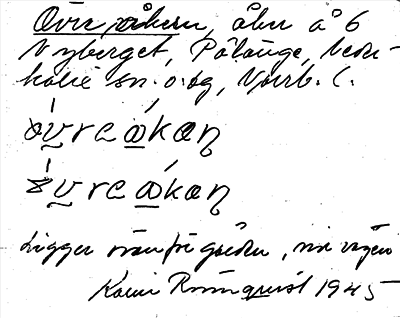 Övre åkern, åker å 6
Nyberget, Pålänge, Neder-
kalix sn. o. sg, Nbrb. l.
övrɛåkaɳ
övrɛåkaɳ
Ligger ovanför gården, vid vägen
Karin Rönnquist 1945